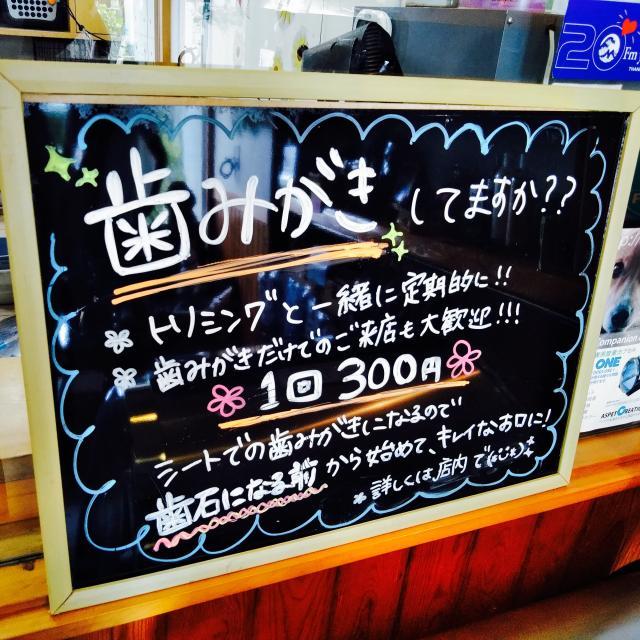 歯みがきしてますか??
トリミングと一緒に定期的に!!
歯みがきだけでのご来店も大歓迎!!!
1回 300円
シートでの歯みがきになるので
歯石になる前から始めて、キレイなお口に!
*詳しくは、店内で
20
Fm
ompanion
ONE